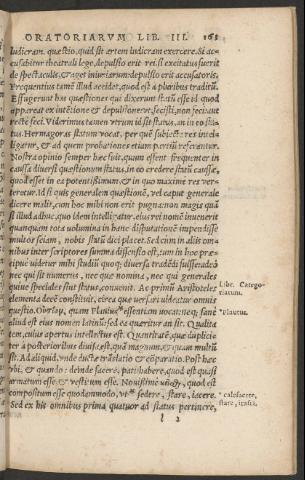 ORATORIARVM LIB. III. 165
ludicram. quæstio, quid sit artem ludicram exercere. Si ac-
cusabitur theatrali lege, depulsio erit rei. si excitatus fuerit
de spectaculis, & aget iniuriarum: depulsio erit accusatoris.
Frequentius tamē illud accidet, quod est a pluribus traditū.
Effugerunt has quæstiones qui dixerunt statū esse id quod
appareat ex intētione & depulsione ut, fecisti, non feci: aut
recte feci. Viderimus tamen utrum id sit status, an in eo sta-
tus. Hermagoras statum uocat, per quē subiecta res intel-
ligatur, & ad quem probationes etiam partiū referantur.
Nostra opinio semper hæc fuit, quum essent frequenter in
causa diuersi quæstionum status, in eo credere statū causæ,
quod esset in ea potentissimum, & in quo maxime res uer-
teretur. Id si quis generalem quæstionē, uel caput generale
dicere malit, cum hoc mihi non erit pugna: non magis quā
si illud adhuc, quo idem intelligitur, eius rei nomē inuenerit
quanquam tota uolumina in hanc disputationē impendisse
multos sciam, nobis statū dici placet. Sed cum in aliis om-
nibus inter scriptores summa dissensio est, tum in hoc præ-
cipue uideatur mihi studiū quoq; diuersa tradēdi fuisse: adeò
nec qui sit numerus, nec quæ nomina, nec qui generales
quiue speciales sint status, conuenit. Ac primū Aristoteles
elementa decē constituit, circa quæ uersari uideatur omnis
quæstio. quam Flauius* essentiam uocat: neq; sane
aliud est eius nomen latinū: sed ea quæritur an sit. Qualita
tem, cuius apertus intellectus est. Quantitatē, quæ duplici-
ter à posterioribus diuisa est, quā magnum, & quàm multū
sit. Ad aliquid, unde ducta trāslatio & cōparatio. Post hæc
vbi, & quando: deinde facere, pati, habere, quod est quasi
armatum esse & vestitum esse. Nouissimè quod est
compositum esse quodammodo, vt* sedere, stare, iacere.
Sed ex his omnibus prima quatuor ad status pertinere,
l 2
Libr. Catego-
riarum.
*Plautus.
* calefacere,
stare, irasci.